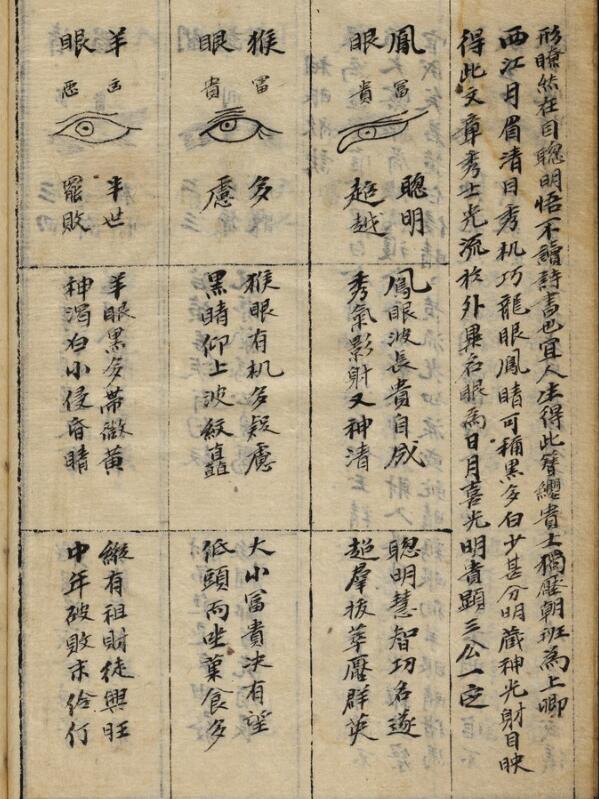 形瞭然在目聰明悟不讀詩書也宜人生得此簪纓貴士獨壓朝班為上卿
西江月眉清目秀机巧龍眼鳳睛可称黑多白少甚分明藏神光射目映
得此文章秀士光流於外異名眼為日月喜光明貴顯三公一定
鳳眼
富貴
聰明超越
鳳眼波長貴自成
秀氣影射又神清
聰明慧智功名遂
超羣拔萃壓群英
猴眼
富貴
多慮
猴眼有机多疑慮
黑睛仰上波紋矗
大小富貴决有望
低頭而坐菓食多
羊眼
凶惡
半世罷敗
羊眼黑多帶微黃
神濁白小侵昏睛
縱有祖財徒興旺
中年破敗末伶仃